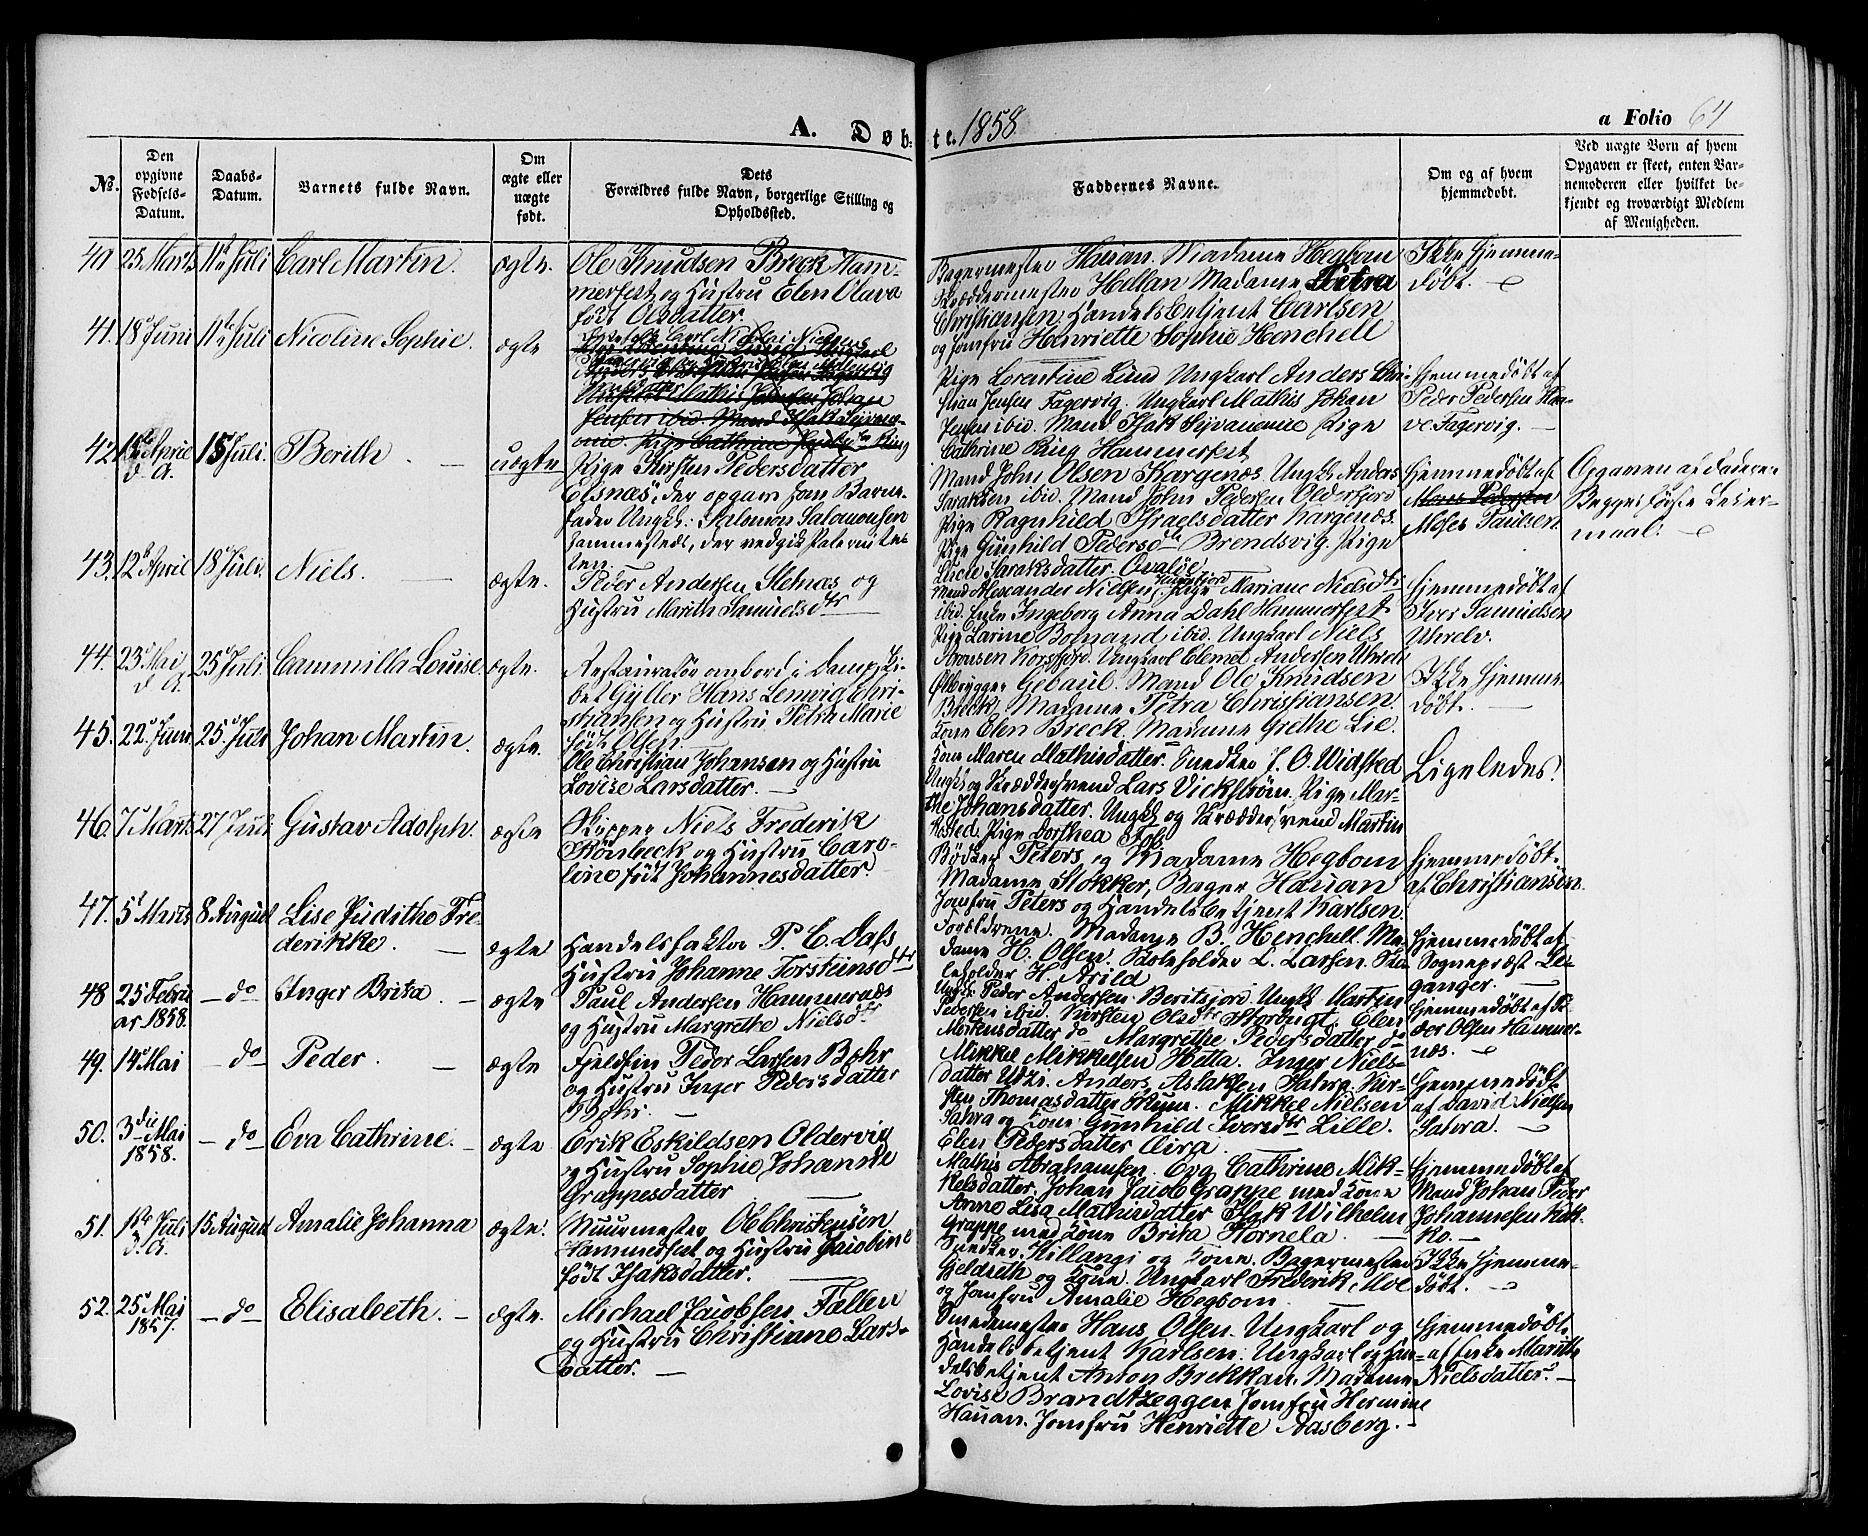 A. Døb-
te. 1858
a Folio 64
No. Den opgivne Fødsels-Datum. Daabs-Datum. Barnets fulde Navn. Om ægte eller uægte født. Dets Forældres fulde Navn, borgerlige Stilling og Opholdssted.
Faddernes Navne. Om og af hvem hjemmedøbt. Ved uægte Børn af hvem Opgaven er skeet, enten Barnemoderen eller hvilket bekjendt og troværdigt Medlem af Menigheden.
40 25 Marts 11te Juli Carl Martin. ægte. Ole Knudsen Breck Ham-
merfest og Hustru Elen Olava
født Olsdatter.
Bagermester Hauan. Madame Hegbom
Skræddermester Hellan Madame Petra
Christiansen, Handelsbetjent Carlsen
og Jomfru Henriette Sophie Henchell
Ikke Hjemme-
døbt.
41. 18 Juni 11te Juli Nicoline Sophie. ægte
Carl Nikolai
Pige Lorentine Lund Ungkarl Anders Chri-
stian Jensen Fagervig. Ungkarl Mathis Johan
Jensen ibid. Mand Isak Sejvanamie Pige
Cathrine Ring Hammerfest
Hjemmedøbt af
Peder Pedersen
Fagervig.
42. April d. A. 15 Juli. Berith uægte Pige Kirsten Pedersdatter
Elsnæs, der opgav som Barne-
fader Ungk: Salomon Salomonsen
sammesteds, der vedgik Paternite-
ten.
Mand John Olsen Kargenæs. Ungk. Anders
Saraksen ibid. Mand John Pedersen Olderfjord
Pige Ragnhild Israelsdatter Kargenæs.
Pige Gunhild Pedersdtr Brendsvig. Pige
Lucie Saraksdatter Qvaløe.
Hjemmedøbt af
Moses Paulsen.
Opgaven af Faderen
Begges første Leier-
maal.
43. 12te April 18 Juli. Niels. ægte. Peder Andersen Slettnæs og
Hustru Marith Samuelsdtr
Mand Alexander Nielsen Pige Mariane Nielsdtr
ibid. Enke Ingeborg Anna Dahl Hammerfest.
Pige Larine ibid. Ungkarl Niels
Aronsen Korsfjord. Ungkarl Clemet Andersen
Hjemmedøbt af
Iver Samuelsen
44. 23 Mai d. A. 25 Juli Cammilla Louise. ægte. Restauratør ombord i Dampski-
bet Gyller Hans Lemvig Chri-
stiansen og Hustru Petra Marie
født Olsen.
Ølbrygger Gebaul. Mand Ole Knudsen
Breck, Madame Petra Christiansen.
Kone Elen Breck. Madame Grethe Lie.
Ikke Hjemme-
døbt.
45. 22 Juni 25 Juli Johan Martin. ægte. Ole Christian Johansen og Hustru
Lovise Larsdatter.
Kone Maren Mathisdatter. Snedker J. O. Widsted
Ungk. og Skræddersvend Lars Vickstrøm. Pige Mar-
the Johansdatter. Ungk. og Skræddersvend Martin
Pige Dorthea
Ligeledes.
46. 7 Marts 27 Juli Gustav Adolph. ægte Skipper Niels Frederik
Rönbeck og Hustru Caro-
line født Johannesdatter
Bødker Peters og Madame Hegbom
Madame Stokker, Bager Hauan
Jomfru Peters og Handelsbetjent Karlsen.
Hjemmedøbt.
af Christiansen.
47. 5 Marts 8 August Lise Judithe Fre-
derikke. ægte Handelsfaktor P. C. Dass
Hustru Johanne Torsteinsdtr
Forældrene. Madame B. Henchell. Ma-
dame H. Olsen. Skoleholder L. Larsen. Sko-
leholder H. Arild
Hjemmedøbt af
Sognepræst
48 25 Febru
ar 1858. do Inger Brita. ægte Paul Andersen Hammernæs
og Hustru Margrethe Nielsdtr
Ungk. Peder Andersen Beritsfjord. Ungk. Martin
Pedersen ibid. Kirsten Olsdtr Storbugt, Elen
Mortensdatter do Margrethe Pedersdatter do
Hjemmedøbt af Pe-
der Olsen Hammer-
næs.
49. 14 Mai do Peder. ægte Fjeldfin Peder Larsen Bæhr
og Hustru Inger Pedersdatter
Bæhr.
Mikkel Mikkelsen Hætta. Inger Niels-
datter Utzi. Anders Aslaksen Sahra. Kir-
sten Thomasdatter Skum. Mikkel Nielsen
Sahra og Kone Gunhild Iversdtr Lille.
Elen Pedersdatter Eira.
Hjemmedøbt
af David Nielsen
Sahra.
50. 3die Mai
1858. do Eva Cathrine. ægte. Erik Eskildsen Oldervig
og Hustru Sophie Johanne
Grappesdatter
Mathis Abrahamsen. Eva Cathrine Mik-
kelsdatter. Johan Jacob Grappe med Kone
Anne Lisa Mathisdatter. Isak Wilhelm
Grappe med Kone Brita Kornela.
Hjemmedøbt af
Mand Johan Peder
Johannesen
51. 1ste Juli
d. A. 15 August Amalie Johanna ægte. Muurmester Ol. Christensen
Hammerfest og Hustru Jacobine
født Isaksdatter.
Snedker Killangi og Kone. Bagermester
Geldseth og Kone. Ungkarl Frederik Moe
og Jomfru Amalie Hegbom
Ikke Hjemme-
døbt.
52. 25 Mai
1857. do Elisabeth. ægte. Michael Jacobsen Fællen
og Hustru Christiane Lars-
datter.
Smedemester Hans Olsen. Ungkarl og
Handelsbetjent Karlsen. Ungkarl og Han-
delsbetjent Anton Brekkan. Madame
Lovise Brandtzeggen Jomfru Hermine
Hauan. Jomfru Henriette Aasberg.
Hjemmedøbt.
af Enke Marith
Nielsdatter.